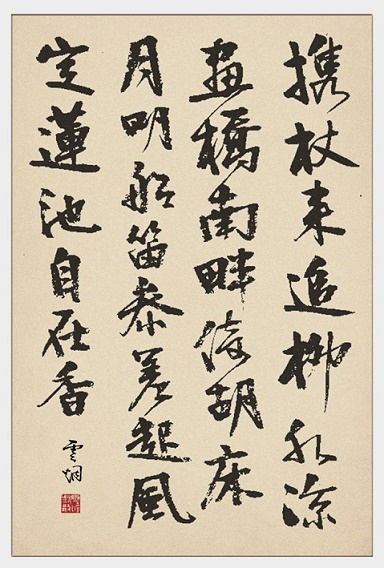 携杖来追柳外涼
畫橋南畔倚胡床
月明船笛参差起風
定蓮池自在香
雲